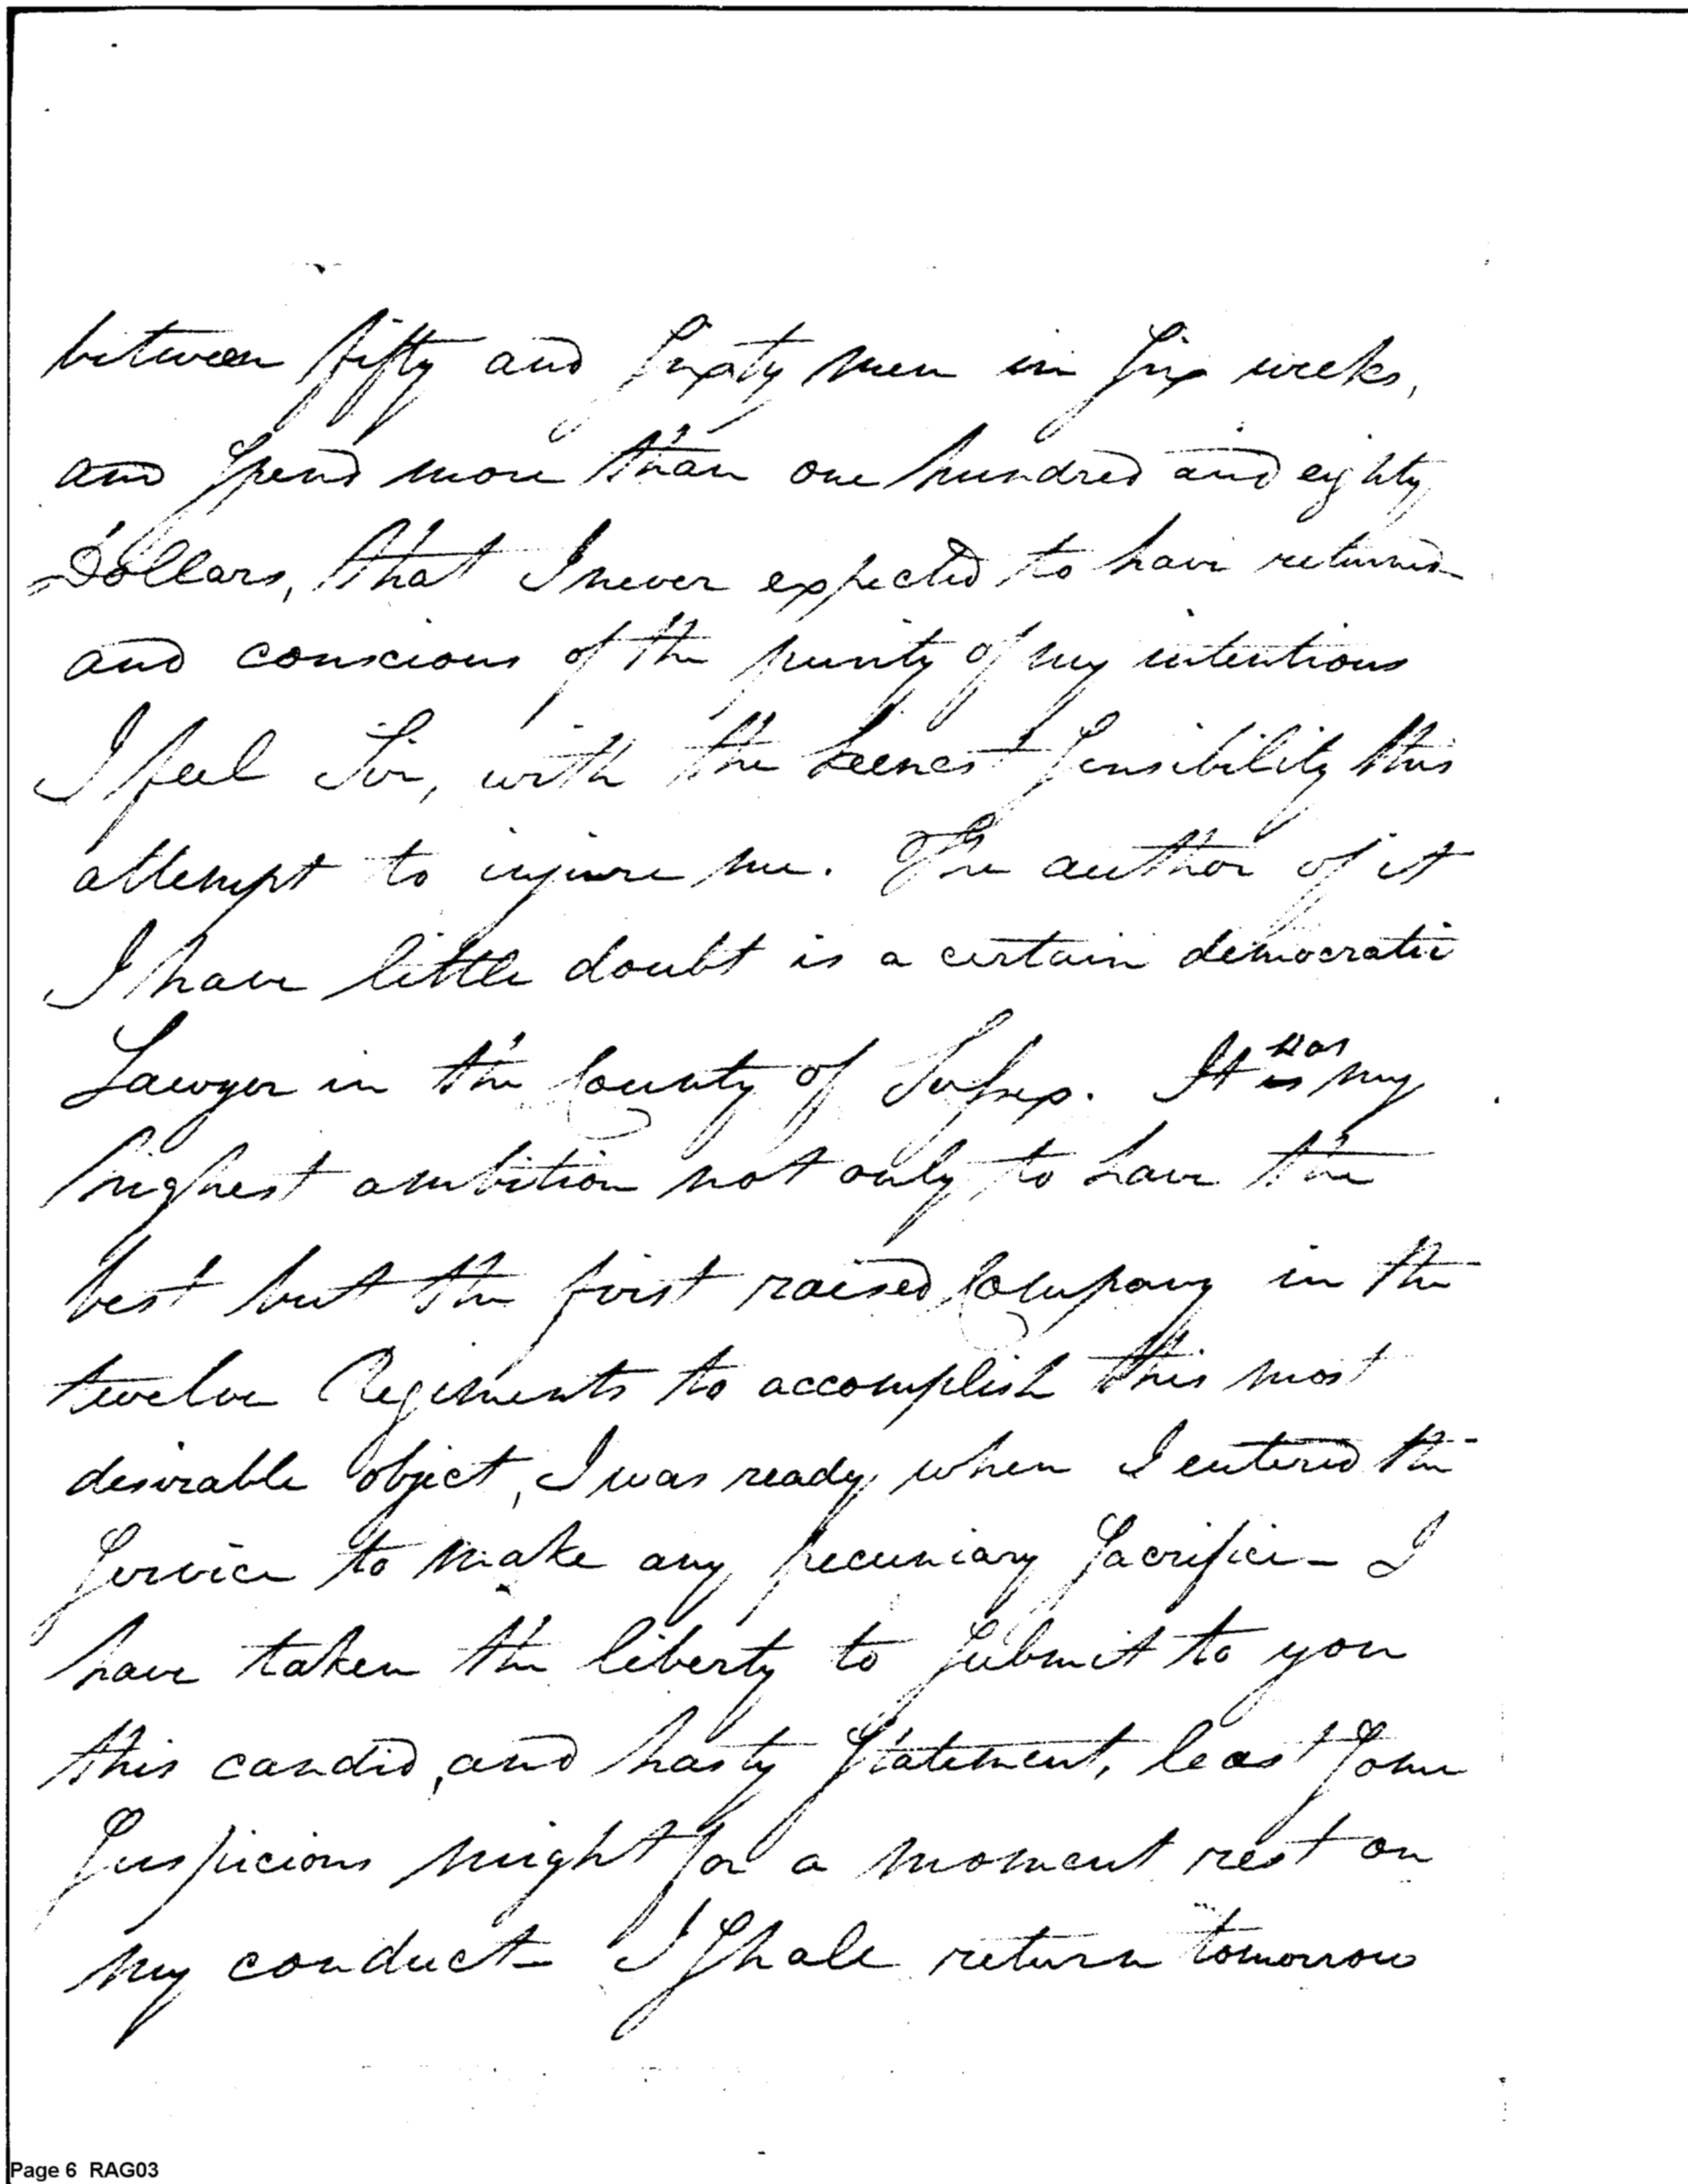 between fifty and Sixty men in Six weeks,
and Spend more than one hundred and eighty
Dollars, that I never expected to have returned
and conscious of the purity of my intentions
I feel Sir, with the keenest Sensibility this
attempt to injure me. The author of it
I have little doubt is a certain democratic
Lawyer in the County of Sussex. It is was my
highest ambition not only to have the
best but the first raised Company in the
twelve Regiments to accomplish this most
desirable object, I was ready, when I entered the
Service to make any pecuniary Sacrifice - I
have taken the liberty to Submit to you
this candid, and hasty Statement, least Some
Suspicions might for a moment rest on
my conduct - I Shall return tomorrow
Page 6 RAG03